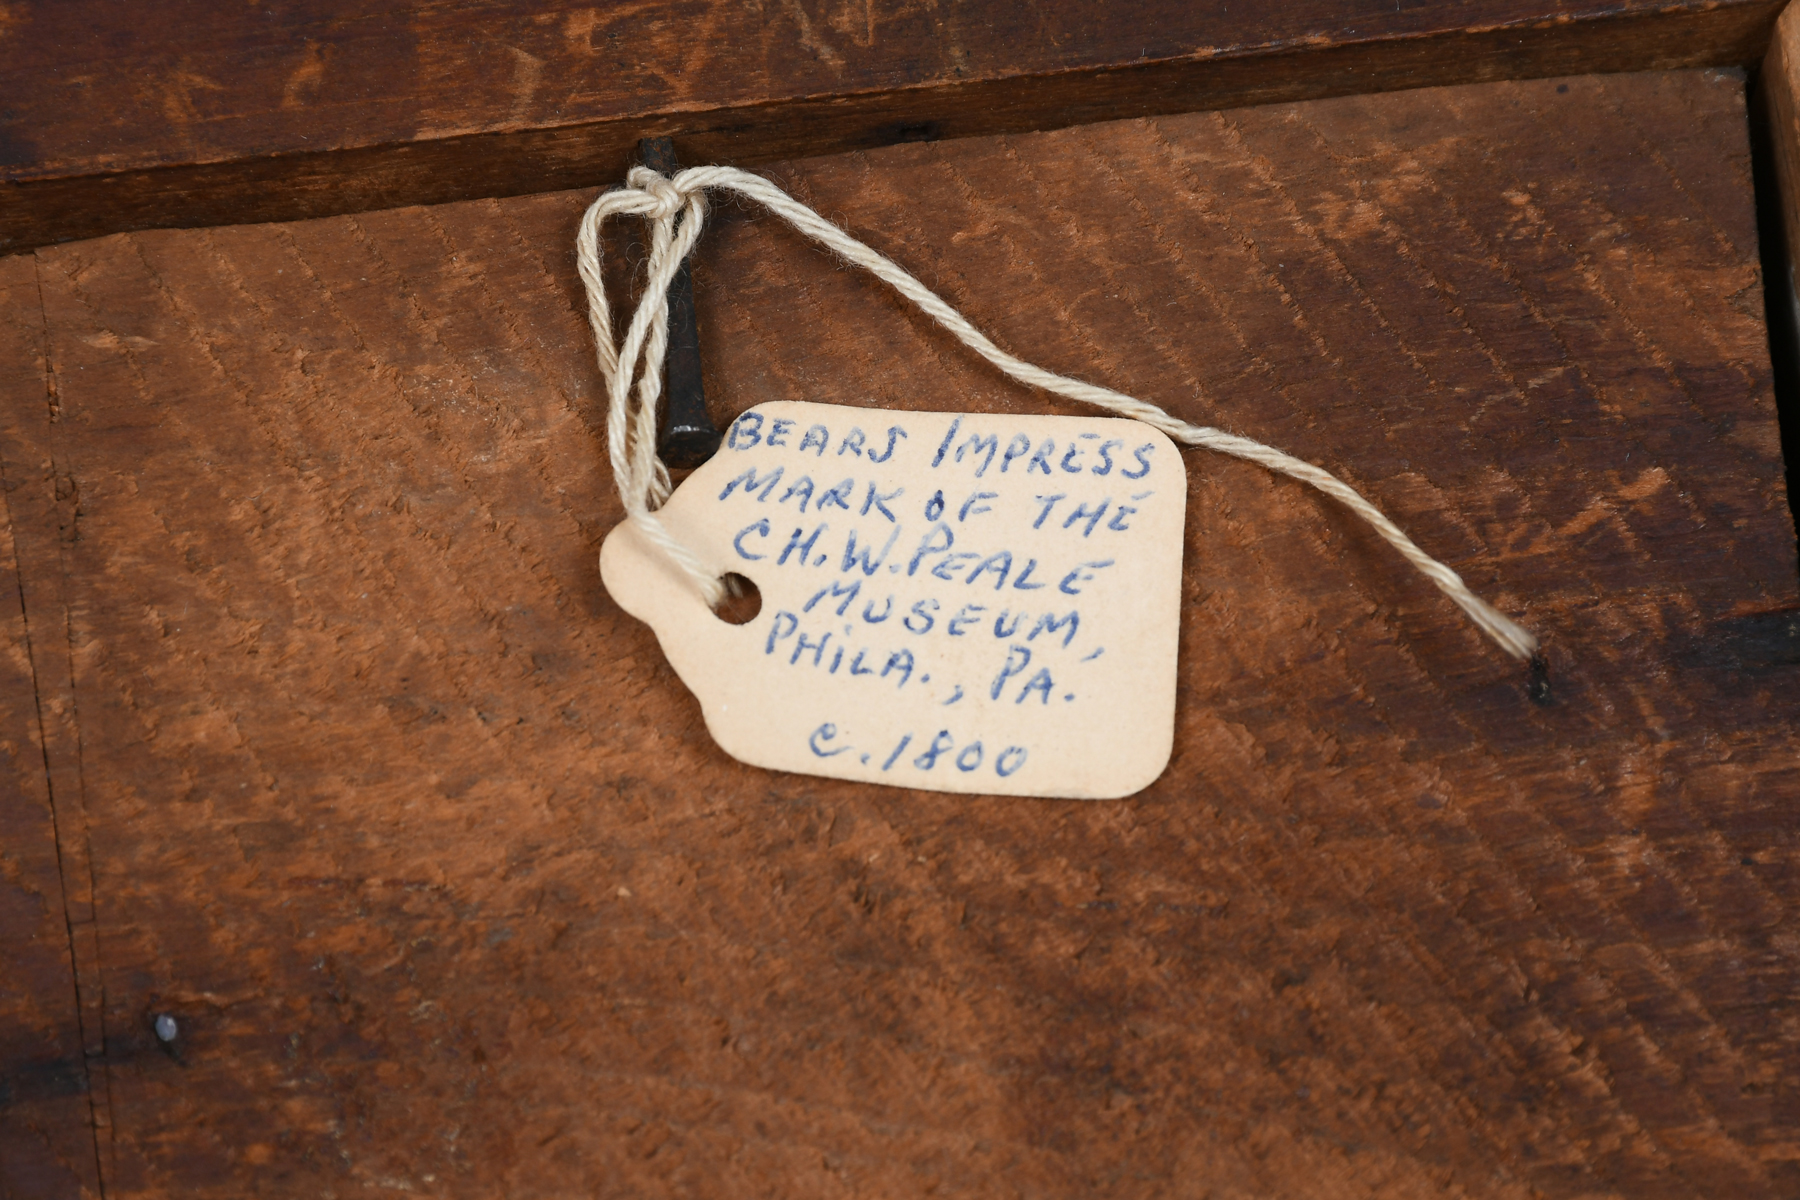 BEARS IMPRESS
MARK OF THE
CH. W. PEALE
MUSEUM,
PHILA., PA.
C. 1800